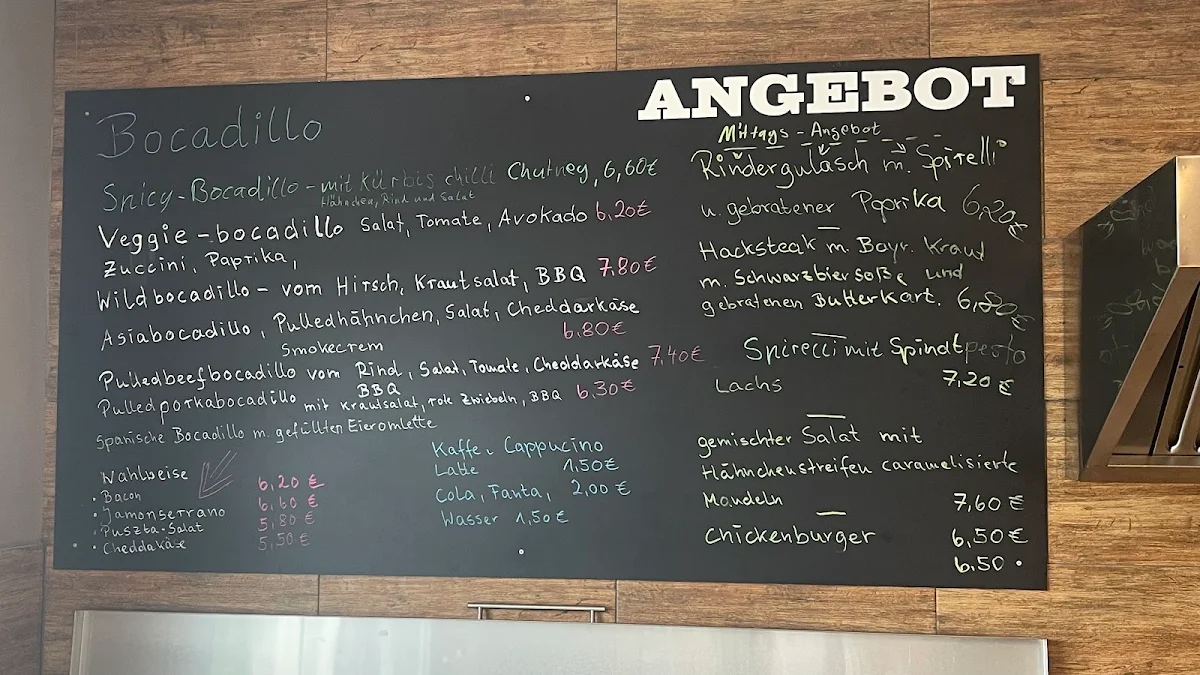 Bocadillo
Spicy-Bocadillo - mit Kürbis chilli Chutney, 6,60€
Hähnchen, Rind und Salat
Veggie - bocadillo Salat, Tomate, Avokado 6,20€
Zuccini, Paprika,
Wildbocadillo - vom Hirsch, Krautsalat, BBQ 7.80€
Asiabocadillo, Pulledhähnchen, Salat, Cheddarkäse
Smokecrem 6,80€
Pulledbeefbocadillo vom Rind, Salat, Tomate, Cheddarkäse 7,40€
BBQ
Pulledporkabocadillo mit Krautsalat, rote Zwiebeln, BBQ 6,30€
Spanische Bocadillo m. gefüllten Eieromlette
Wahlweise
• Bacon 6,20 €
• Jamonserrano 6,60 €
• Puszta-Salat 5,80 €
• Cheddakäse 5,50 €
Kaffe, Cappucino
Latte 1,50€
Cola, Fanta, 2,00 €
Wasser 1,50€
ANGEBOT
Mittags - Angebot
Rindergulasch m. Spirelli
u. gebratener Paprika 6,20€
Hacksteak m. Bayr. Kraut
m. Schwarzbiersoße und
gebratenen Butterkart. 6,80€
Spirelli mit Spinatpesto
Lachs 7,20 €
gemischter Salat mit
Hähnchenstreifen caramelisierte
Mandeln 7,60 €
Chickenburger 6,50€
6,50 •